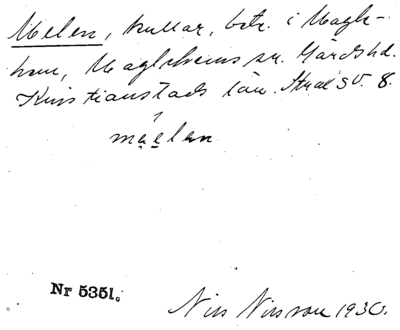 Melen, kullar, betr. i Magle-
hem, Maglehems sn. Gärds hd.
Kristianstads län. Strad SV. 8.
mælen
Nr 5351.
Nils Nilsson 1930.